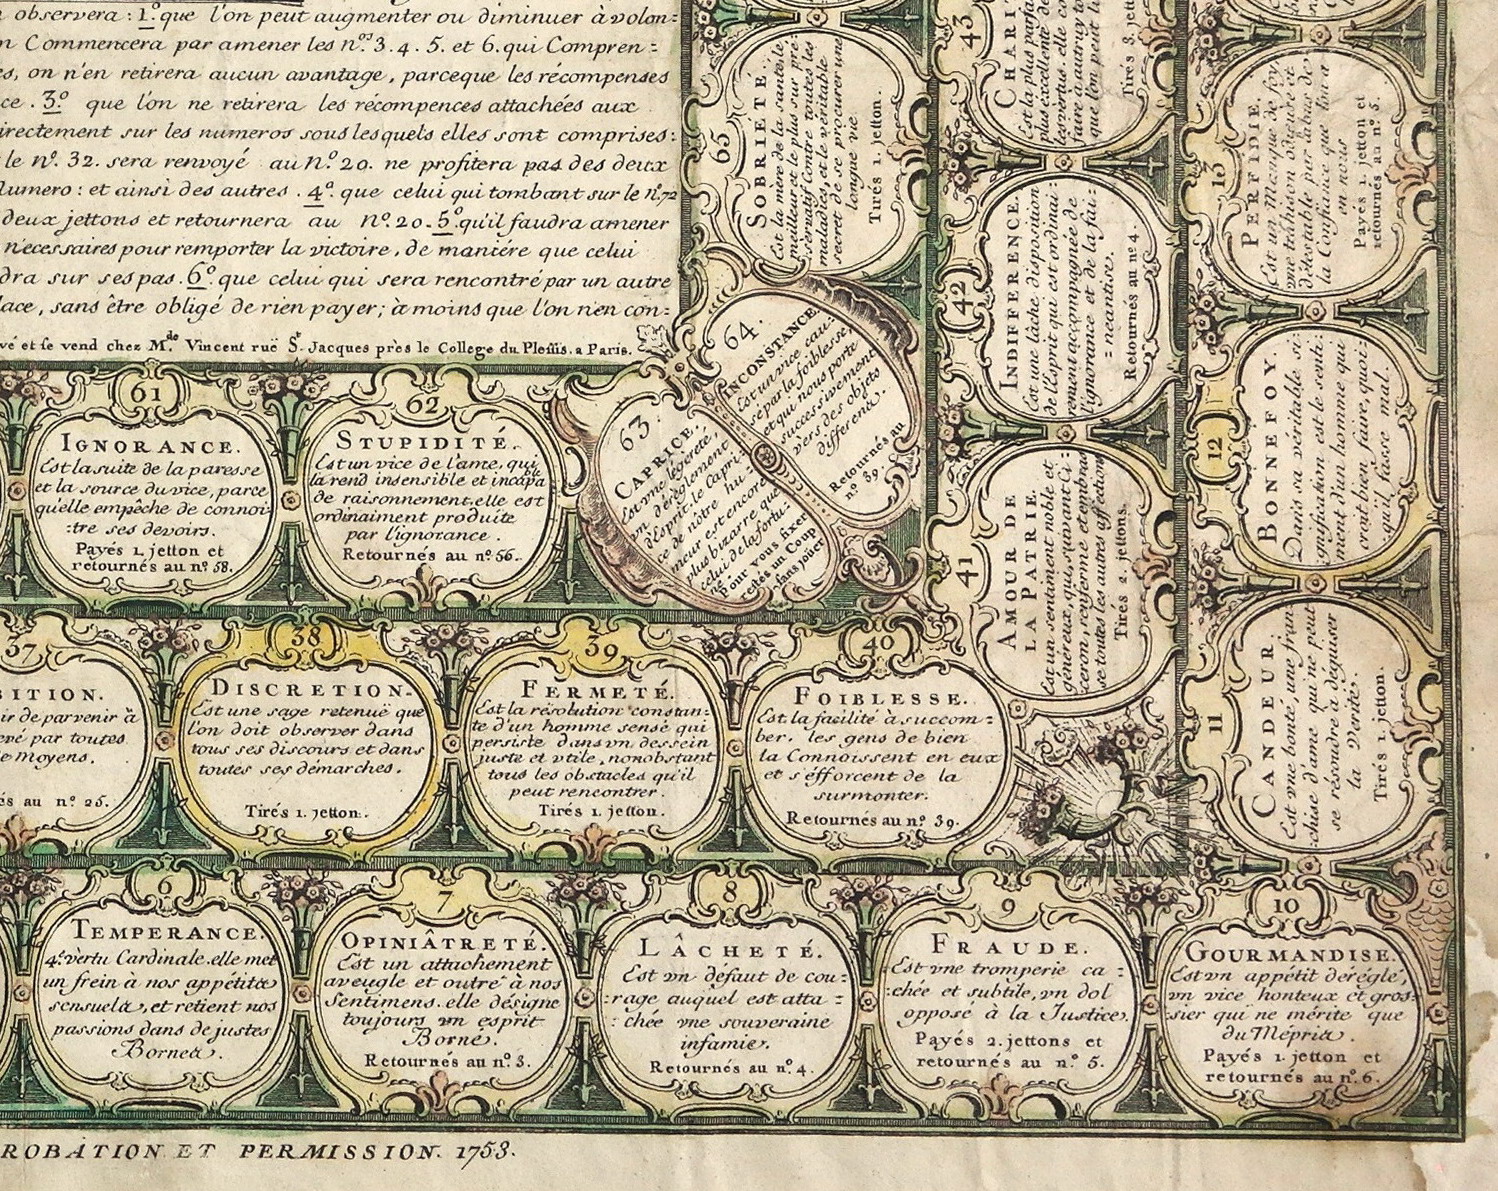 observera : 1.º que l'on peut augmenter ou diminuer à volon:
Commencera par amener les n.os 3. 4. 5. et 6. qui Compren:
es, on n'en retirera aucun avantage, parceque les récompenses
ce. 3.º que l'on ne retirera les récompences attachées aux
irectement sur les numeros sous lesquels elles sont comprises:
le n.º 32. sera renvoyé au N.º 20. ne profitera pas des deux
Numero : et ainsi des autres. 4.º que celui qui tombant sur le n.º 72
deux jettons et retournera au N.º 20. 5.º qu'il faudra amener
necessaires pour remporter la victoire, de maniére que celui
dra sur ses pas. 6.º que celui qui sera rencontré par un autre
lace, sans être obligé de rien payer; à moins que l'on n'en con:
vé et se vend chez M.de Vincent ruë S.t Jacques près le College du Plessis. a Paris.
65
SOBRIETÉ.
Est la mère de la santé, le
meilleur et le plus sur pre:
servatif Contre toutes les
maladies et le véritable
secret de se procurer une
longue vie.
Tirés 1. jetton.
43
CHARI
Est la plus parfai
plus excellente de
les vertus. elle co
faire à autruy to
que l'on peut
Tirés 3. jett
13
PERFIDIE.
Est un Manque de foy,
une trahison odieuse et
détestable par l'abus de
la Confiance que l'on a
en nous
Payés 1. jetton et
retournés au n.º 5.
42
INDIFFERENCE.
Est une lâche disposition
de l'Esprit qui est ordinai:
rement accompagnée de
l'ignorance et de la fai:
:neantise.
Retournés au n.º 4.
12
BONNE FOY.
Dans sa véritable si:
gnification est le senti:
ment d'un homme qui
croit bien faire, quoi:
qu'il fasse mal.
64.
INCONSTANCE.
Est un vice cau:
sé par la foiblesse,
et qui nous porte
successivement
vers des objets
differens.
Retournés au
n.º 39.
63.
CAPRICE.
Est une légereté,
un déréglement
d'Esprit. le Capri:
ce de nôtre hu:
meur est encore
plus bizarre que
celui de la fortu:
ne
Pour vous fixer
restés un Coup
sans jouer.
61
IGNORANCE.
Est la suite de la paresse
et la source du vice, parce
qu'elle empêche de connoi:
:tre ses devoirs.
Payés 1. jetton et
retournés au n.º 58.
62
STUPIDITÉ.
Est un vice de l'ame, qui
la rend insensible et incapa
ble
de raisonnement. elle est
ordinaiment produite
par l'ignorance.
Retournés au n.º 56.
41
AMOUR DE
LA PATRIE.
Est un sentiment noble et
généreux, qui, suivant Ci:
ceron, renferme et embras
se toutes les autres affections
Tirés 2. jettons.
11
CANDEUR.
Est une bonté, une fran
:chise d'ame qui ne peut
se résoudre à déguiser
la Verité.
Tirés 1. jetton.
37
BITION.
ir de parvenir à
evé par toutes
e Moyens.
és au n.º 25.
38
DISCRETION.
Est une sage retenuë que
l'on doit observer dans
tous ses discours et dans
toutes ses démarches.
Tirés 1. jetton.
39
FERMETÉ.
Est la résolution constan:
te d'un homme sensé qui
persiste dans un dessein
juste et utile, nonobstant
tous les obstacles qu'il
peut rencontrer.
Tirés 1. jetton.
40
FOIBLESSE.
Est la facilité à succom:
ber. les gens de bien
la Connoissent en eux
et s'éfforcent de la
surmonter.
Retournés au n.º 39.
6
TEMPERANCE.
4.e vertu Cardinale. elle met
un frein à nos appétits
sensuels, et retient nos
passions dans de justes
Bornes.
7
OPINIÂTRETÉ.
Est un attachement
aveugle et outré à nos
Sentimens. elle désigne
toujours un esprit
Borné.
Retournés au n.º 3.
8
LÂCHETÉ.
Est un défaut de cou:
rage auquel est atta:
:chée une souveraine
infamie.
Retournés au n.º 4.
9
FRAUDE.
Est une tromperie ca:
:chée et subtile, un dol
opposé à la Justice.
Payés 2. jettons et
retournés au n.º 5.
10
GOURMANDISE.
Est un appétit déréglé,
un vice honteux et gros:
sier qui ne mérite que
du Mépris.
Payés 1. jetton et
retournés au n.º 6.
ROBATION ET PERMISSION. 1753.